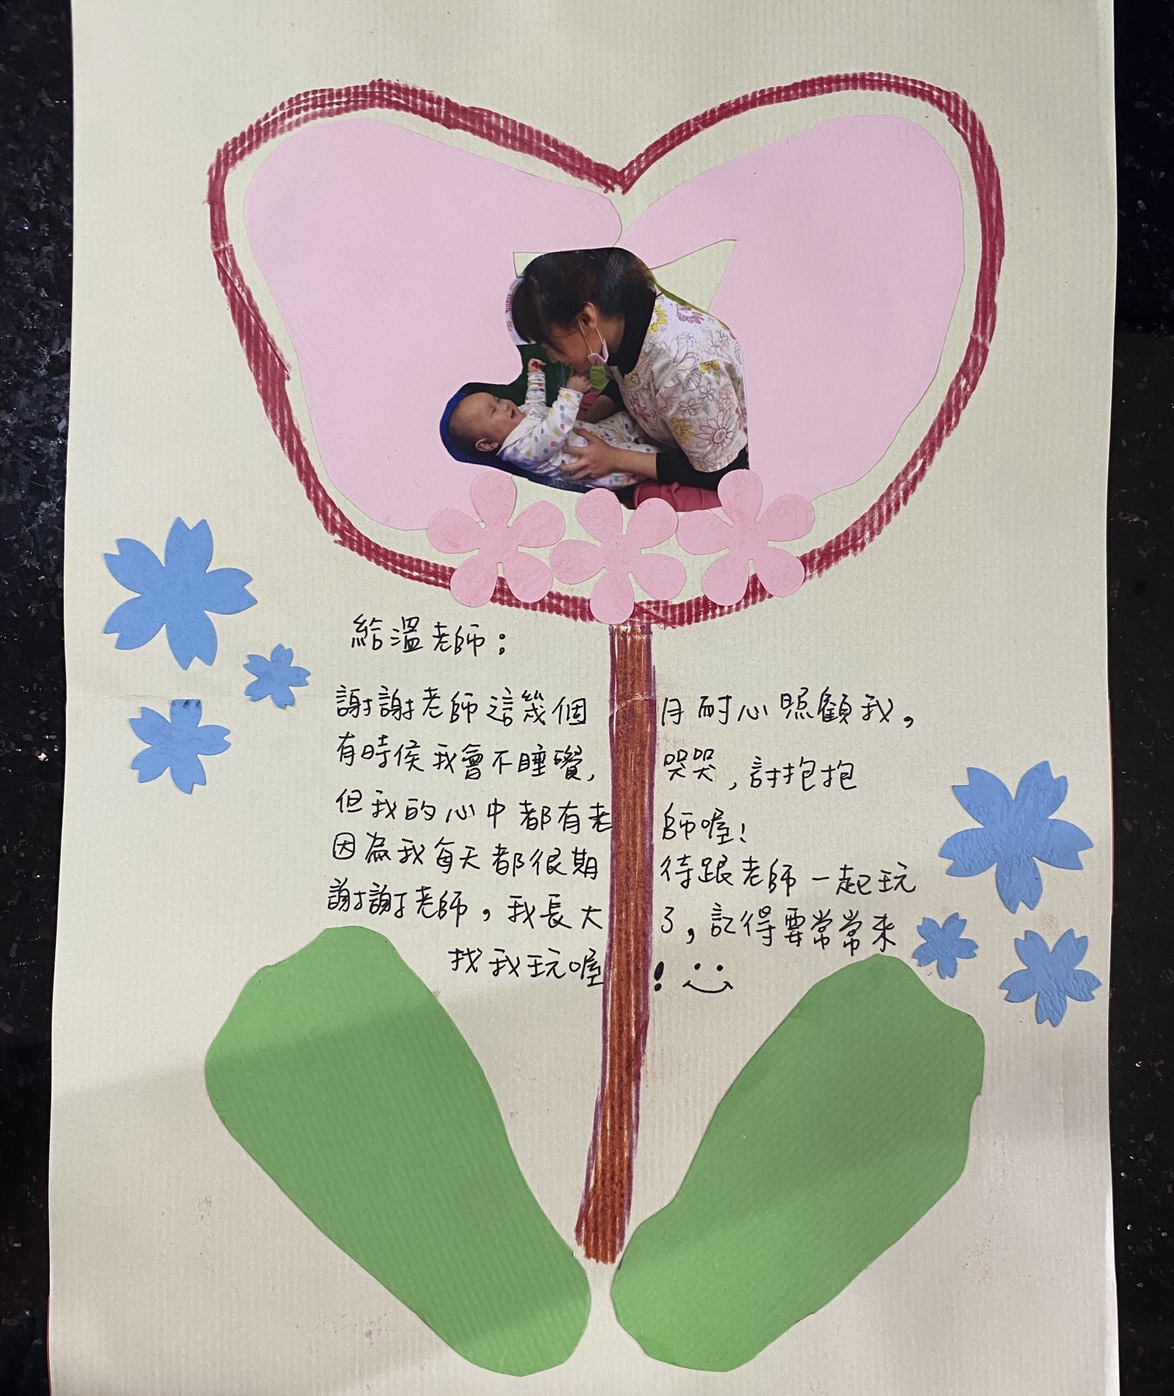 給溫老師：
謝謝老師這幾個月耐心照顧我，
有時侯我會不睡覺，哭哭，討抱抱
但我的心中都有老師喔！
因為我每天都很期待跟老師一起玩
謝謝老師，我長大了，記得要常常來
找我玩喔！